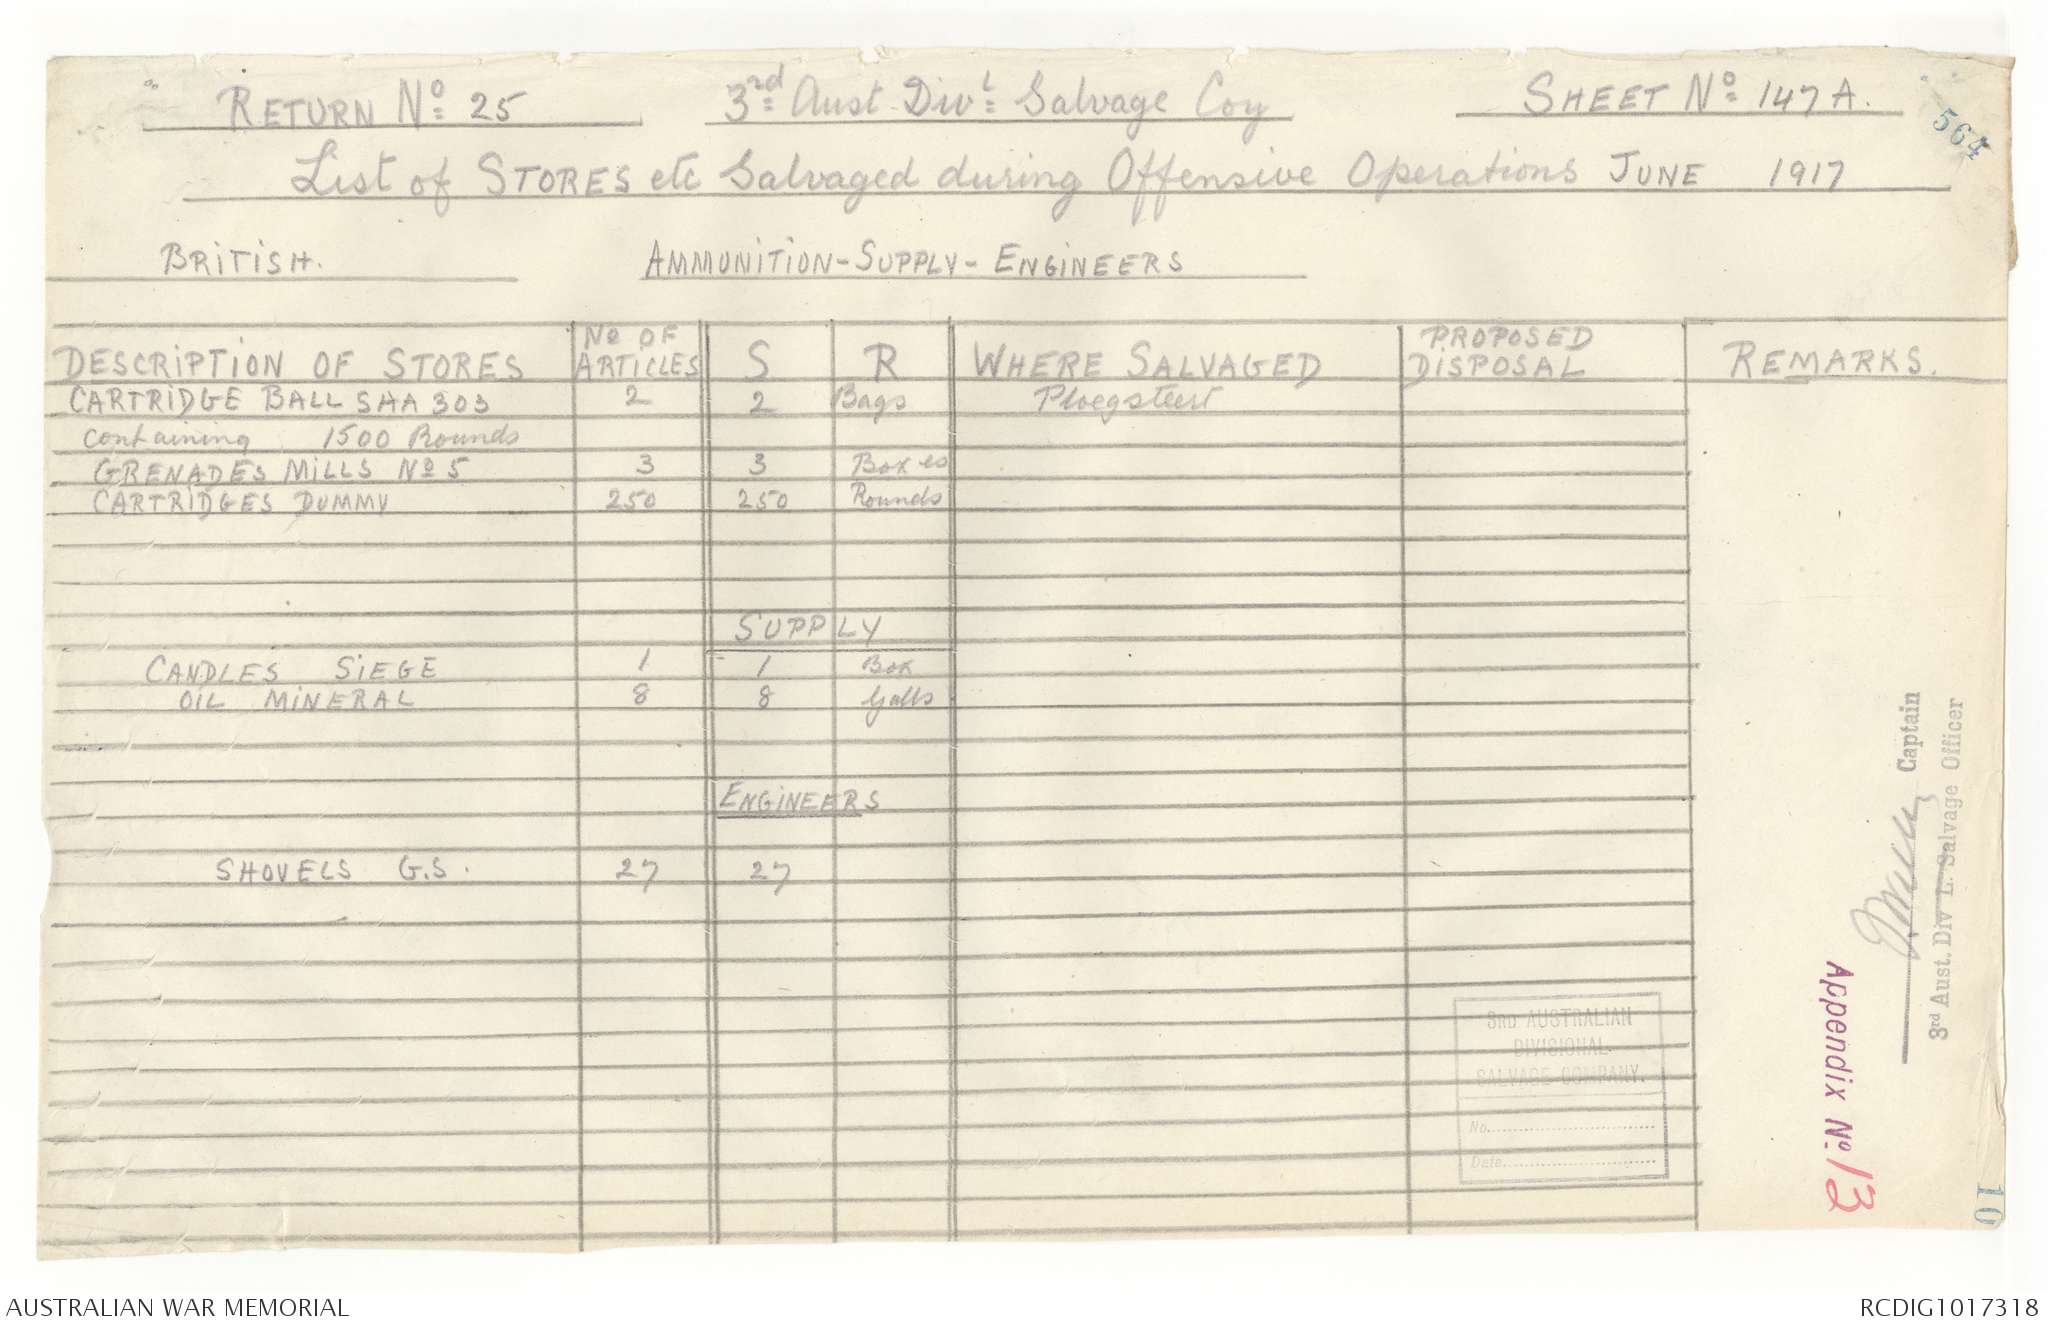 Return No. 25 3rd Aust Divl. Salvage Coy Sheet No. 147A.
564
List of Stores etc Salvaged during Offensive Operations June 1917
British. Ammunition-Supply-Engineers
Description of Stores No of Articles S R Where Salvaged Proposed Disposal Remarks.
Cartridge Ball SAA 303 2 2 Bags Ploegsteert
containing 1500 Rounds
Grenades Mills No 5 3 3 Boxes
Cartridges Dummy 250 250 Rounds
Supply
Candles Siege 1 1 Box
Oil Mineral 8 8 Galls
Engineers
Shovels G.S. 27 27
3RD AUSTRALIAN
DIVISIONAL
SALVAGE COMPANY.
No.
Date.
Captain
3rd Aust. Div L. Salvage Officer
Appendix No. 13
10
AUSTRALIAN WAR MEMORIAL RCDIG1017318